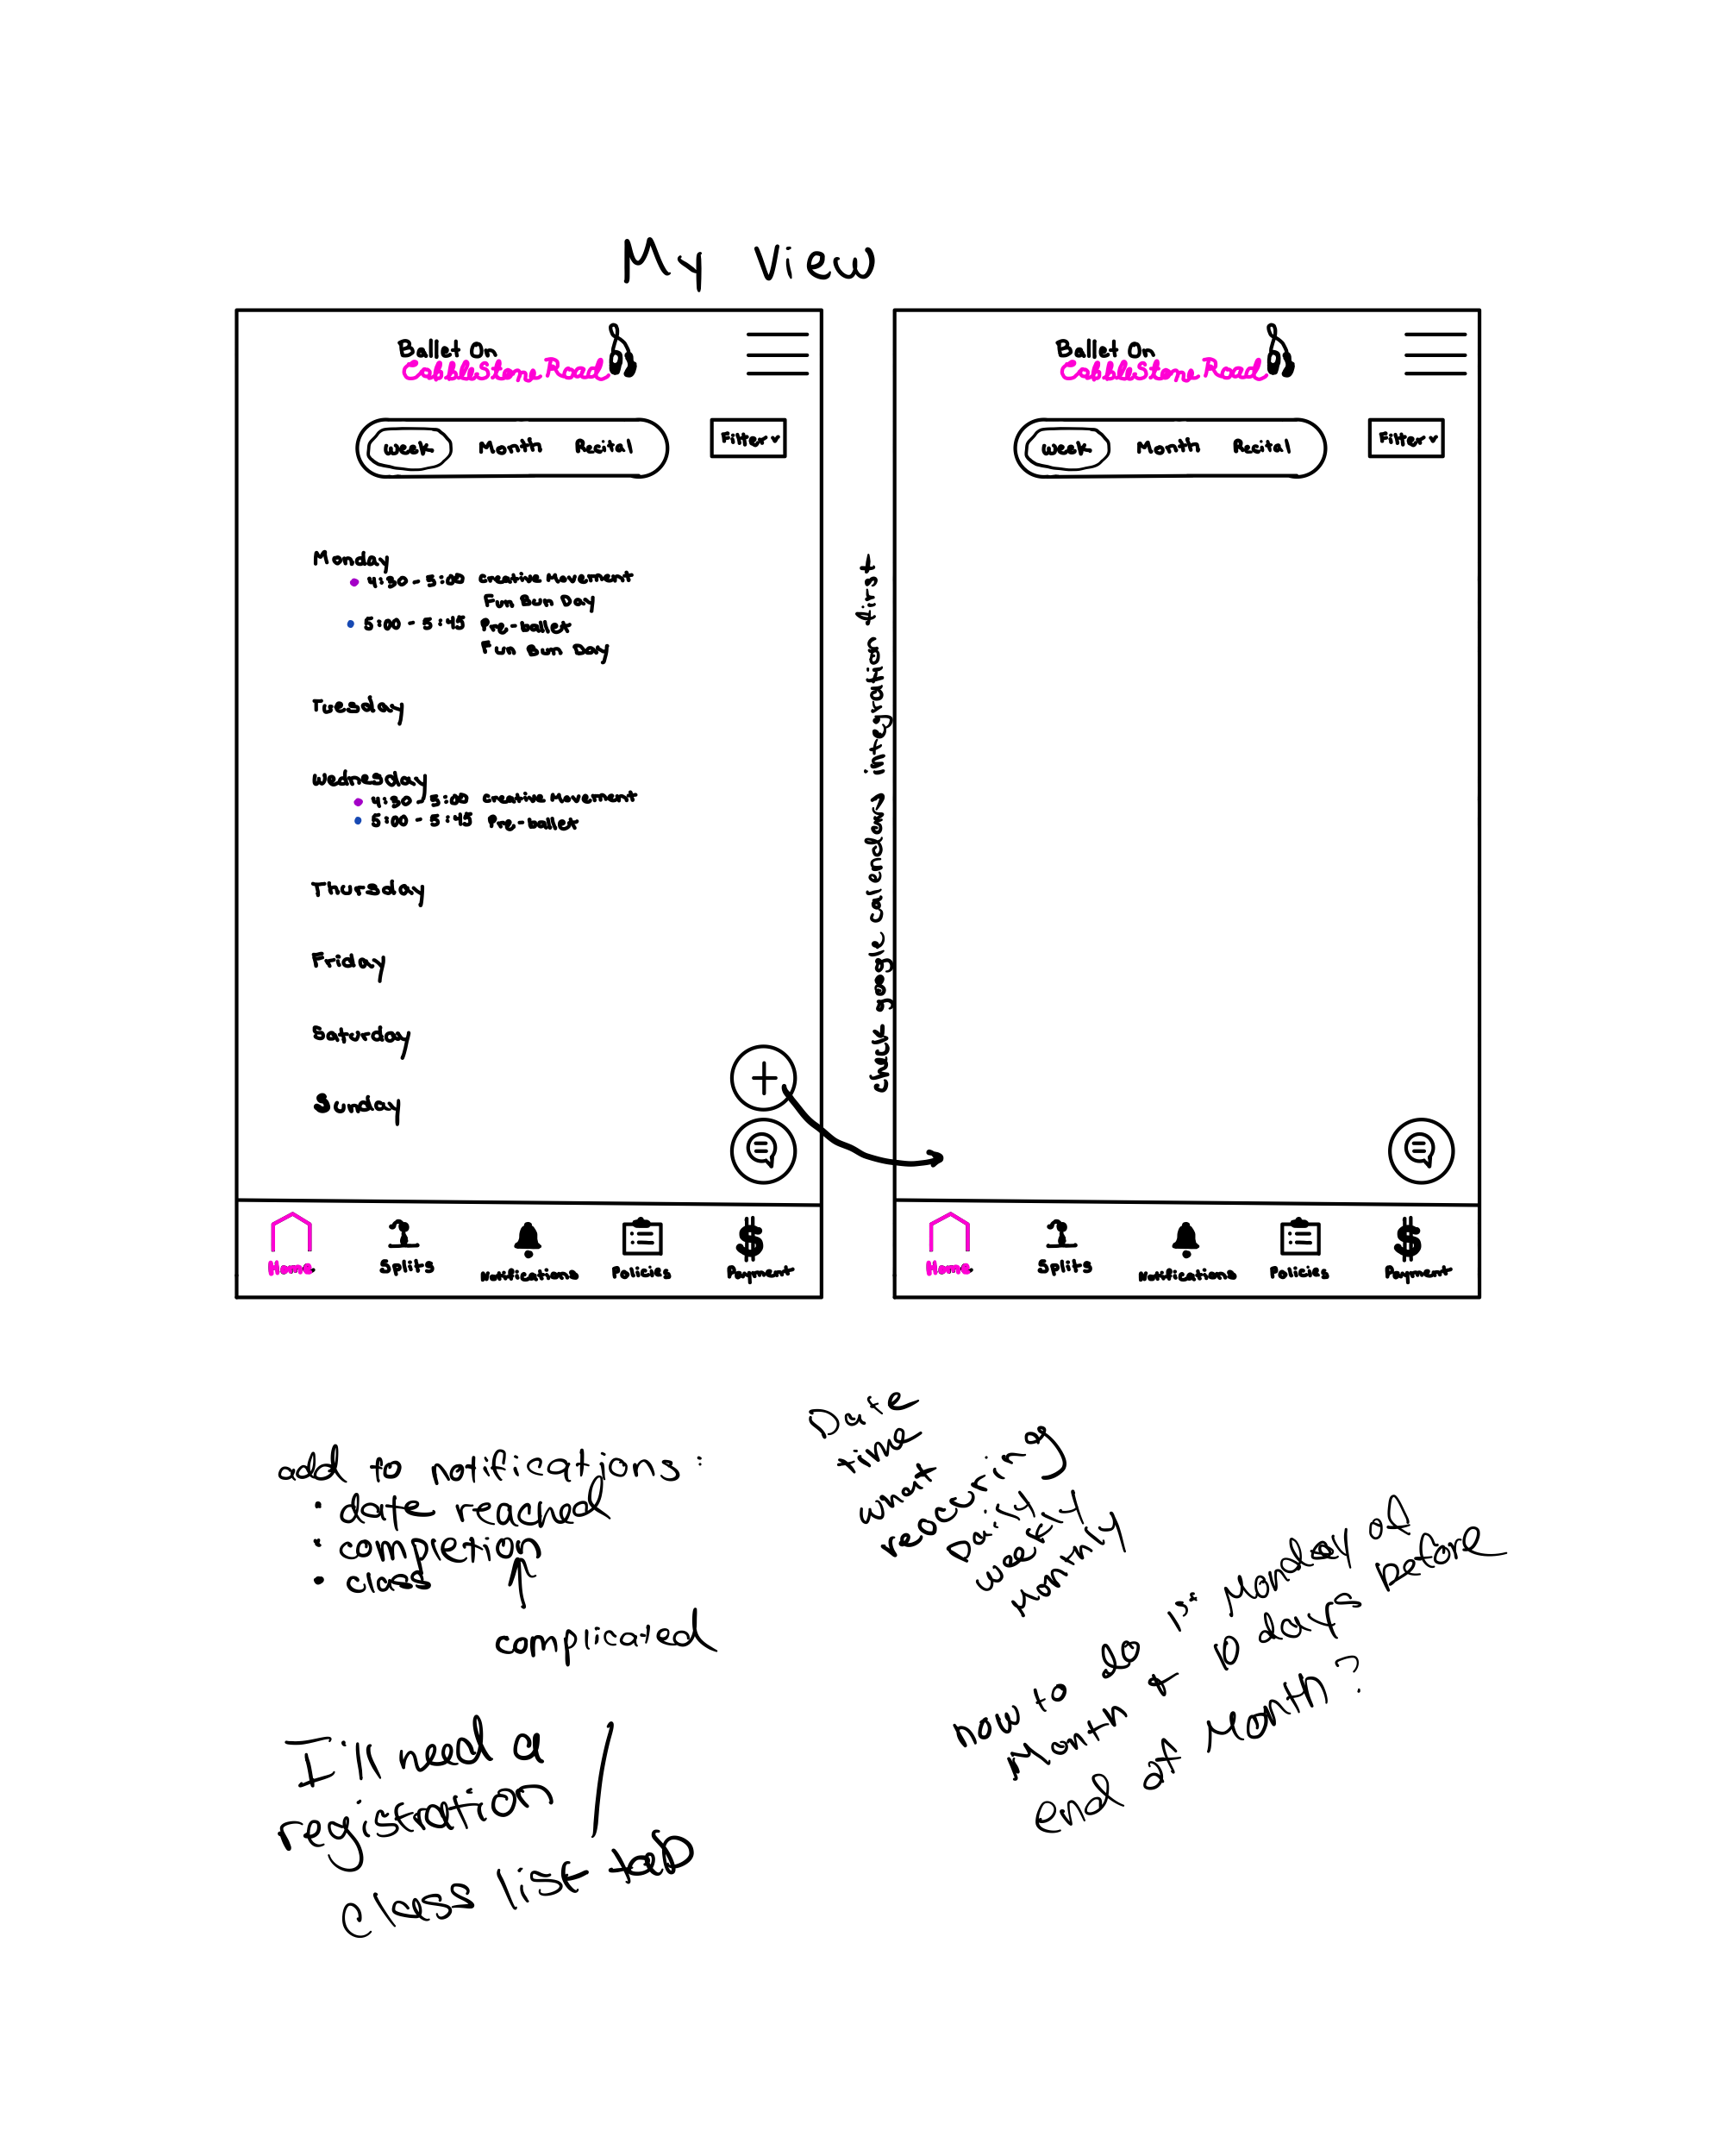 My View
Ballet On
Cobblestone Road
Week Month Recital
Filter
Monday
• 4:30 - 5:00 Creative Movement
Fun Bun Day
• 5:00 - 5:45 Pre-ballet
Fun Bun Day
Tuesday
Wednesday
• 4:30 - 5:00 Creative Movement
• 5:00 - 5:45 Pre-ballet
Thursday
Friday
Saturday
Sunday
+
Home
Splits
Notifications
Policies
$
Payment
check google calendar integration first
Ballet On
Cobblestone Road
Week Month Recital
Filter
Home
Splits
Notifications
Policies
$
Payment
add to notifications:
• date reached
• completion
• class
complicated
I'll need a
registration /
class list tab
Date
time
what
reoccuring
Daily
weekly
Monthly
how to do 1st Monday of
Month & 10 days before
end of Month?